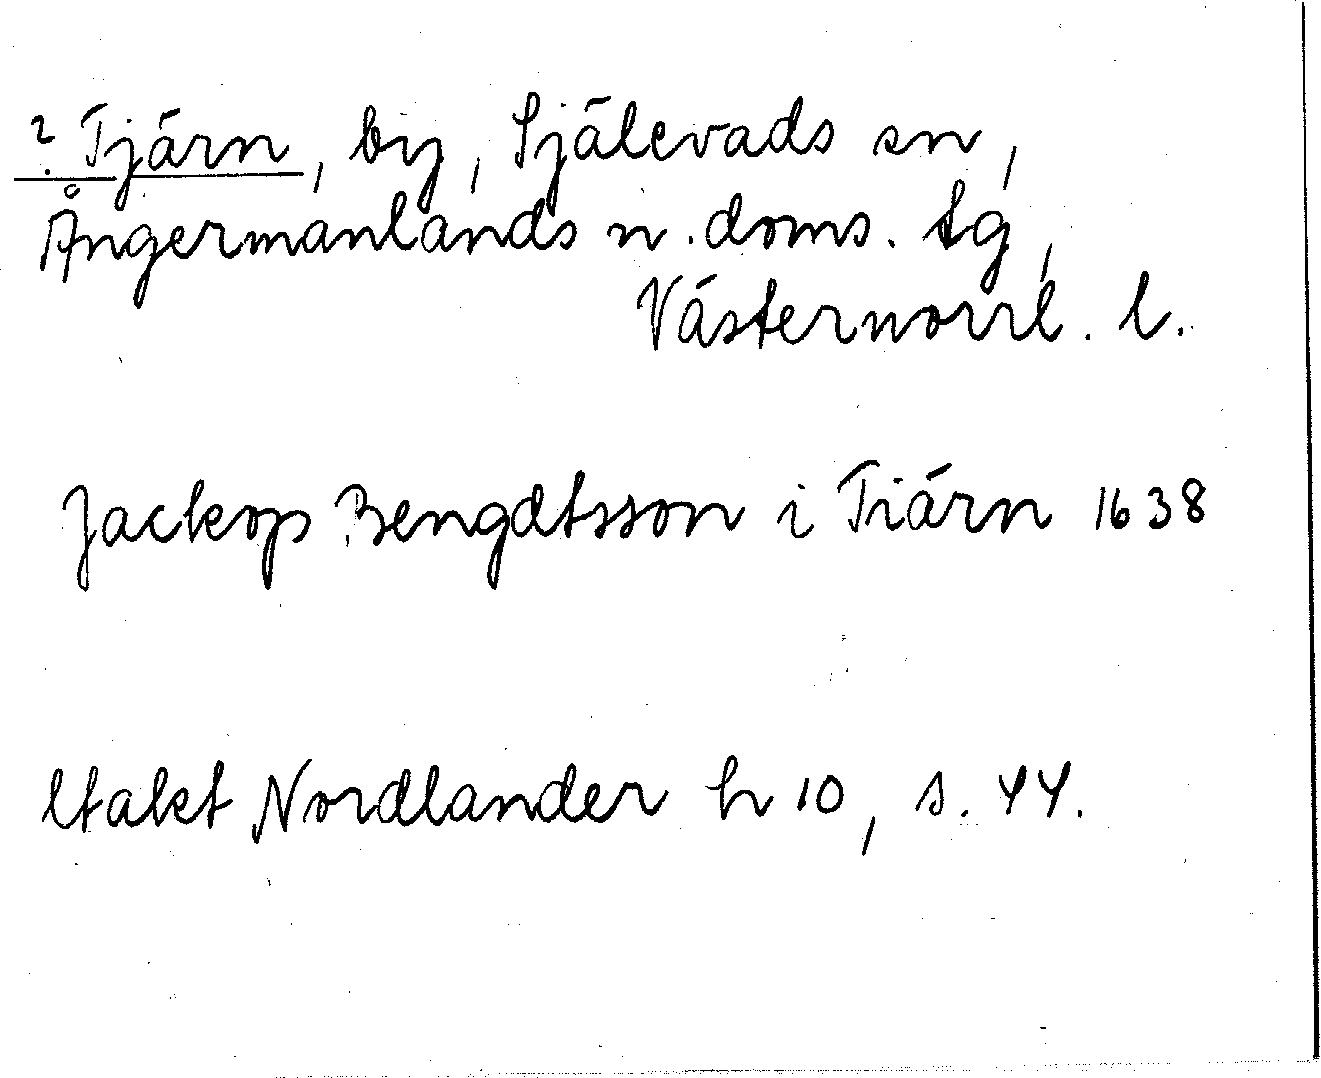 ? Tjärn, by, Själevads sn,
Ångermanlands n. doms. tg,
Västernorrl. l.
Jackop Bengdtsson i Tiärn 1638
Utakt Nordlander h 10, s. 44.